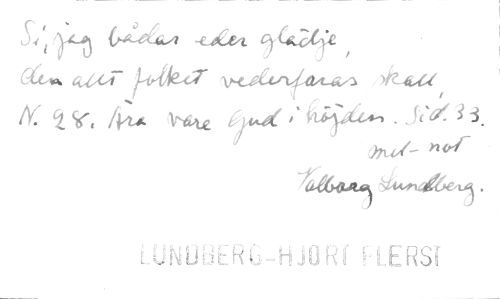 Si, jag bådar eder glädje,
den allt folket vederfaras skall,
N. 28. Ära vare Gud i höjden. Sid. 33.
mel- not
Valborg Lundberg.
LUNDBERG-HJORT FLERST